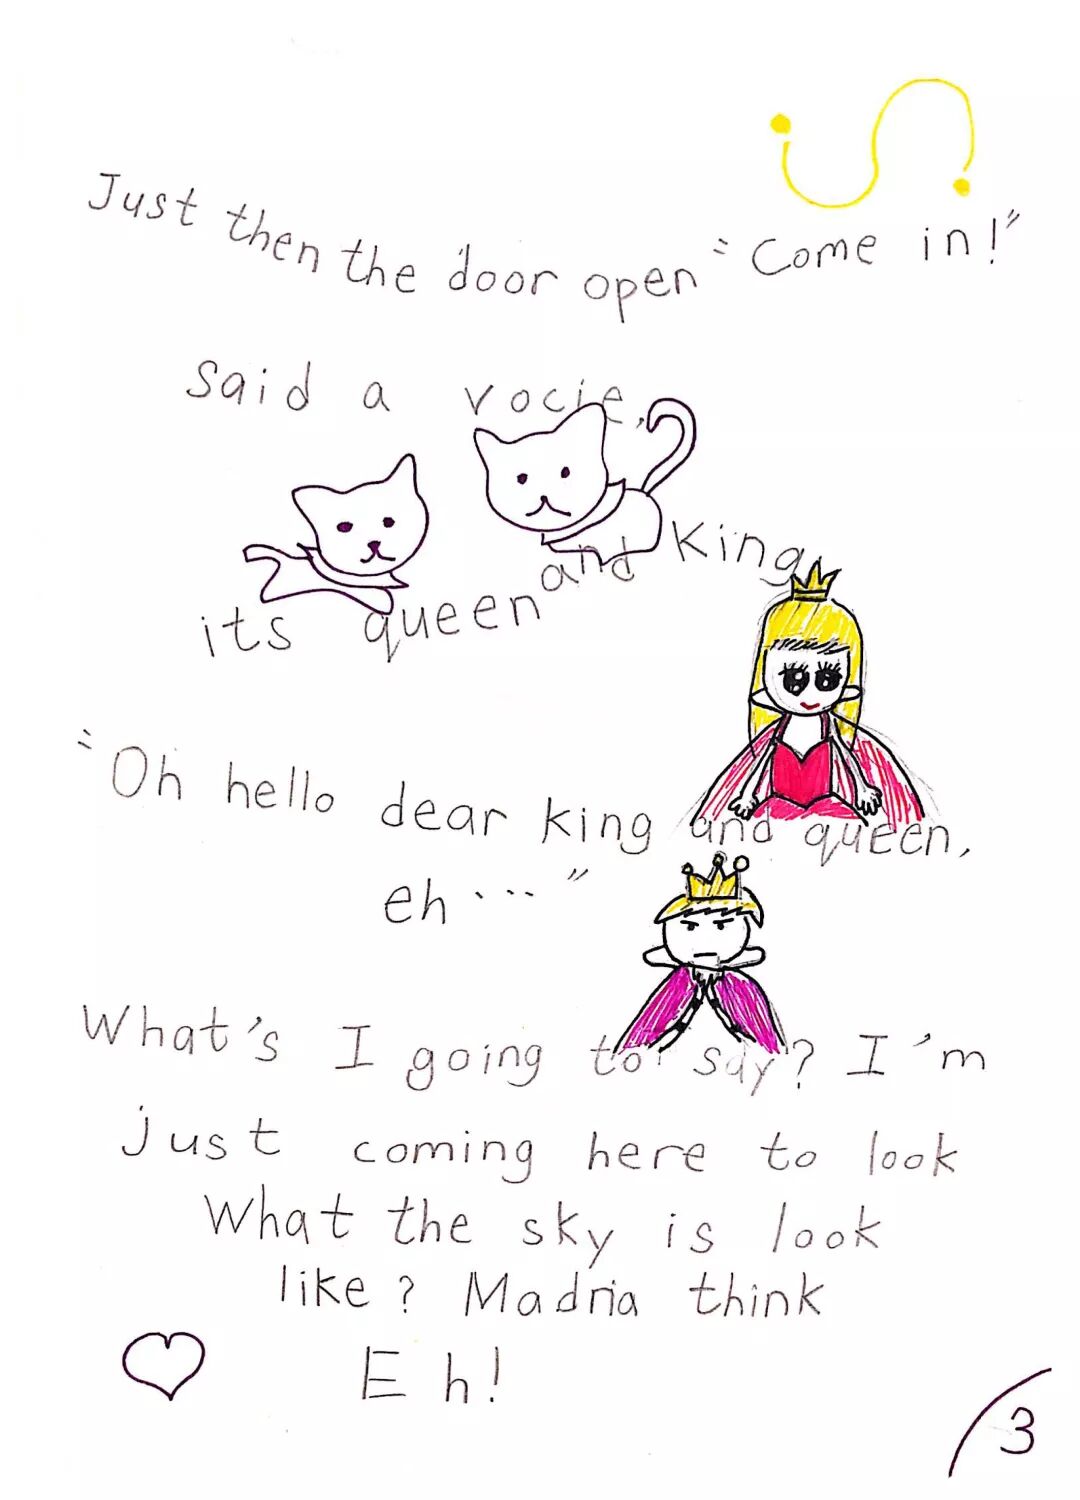 Just then the door open "Come in!"
said a vocie,
its queen and King
"Oh hello dear king and queen,
eh ..."
What's I going to say? I'm
just coming here to look
What the sky is look
like? Madria think
Eh!
3